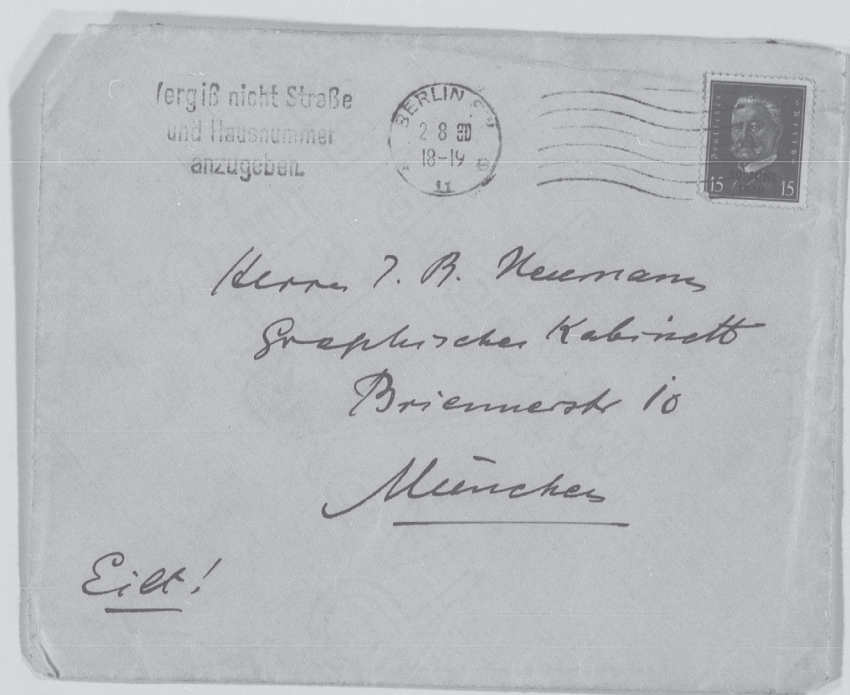 Vergiß nicht Straße
und Hausnummer
anzugeben.
BERLIN
2 8 30
18-19
Deutsches Reich
15 15
Herrn J. B. Neumann
Graphisches Kabinett
Briennerstr 10
München
Eilt!